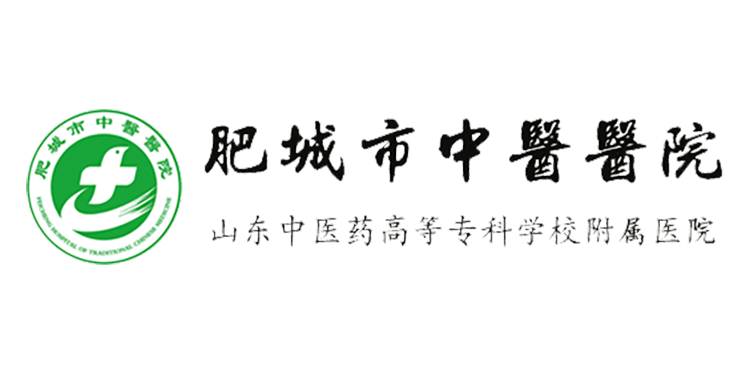 肥城市中醫醫院
FEICHENG HOSPITAL OF TRADITIONAL CHINESE MEDICINE
肥城市中醫醫院
山东中医药高等专科学校附属医院